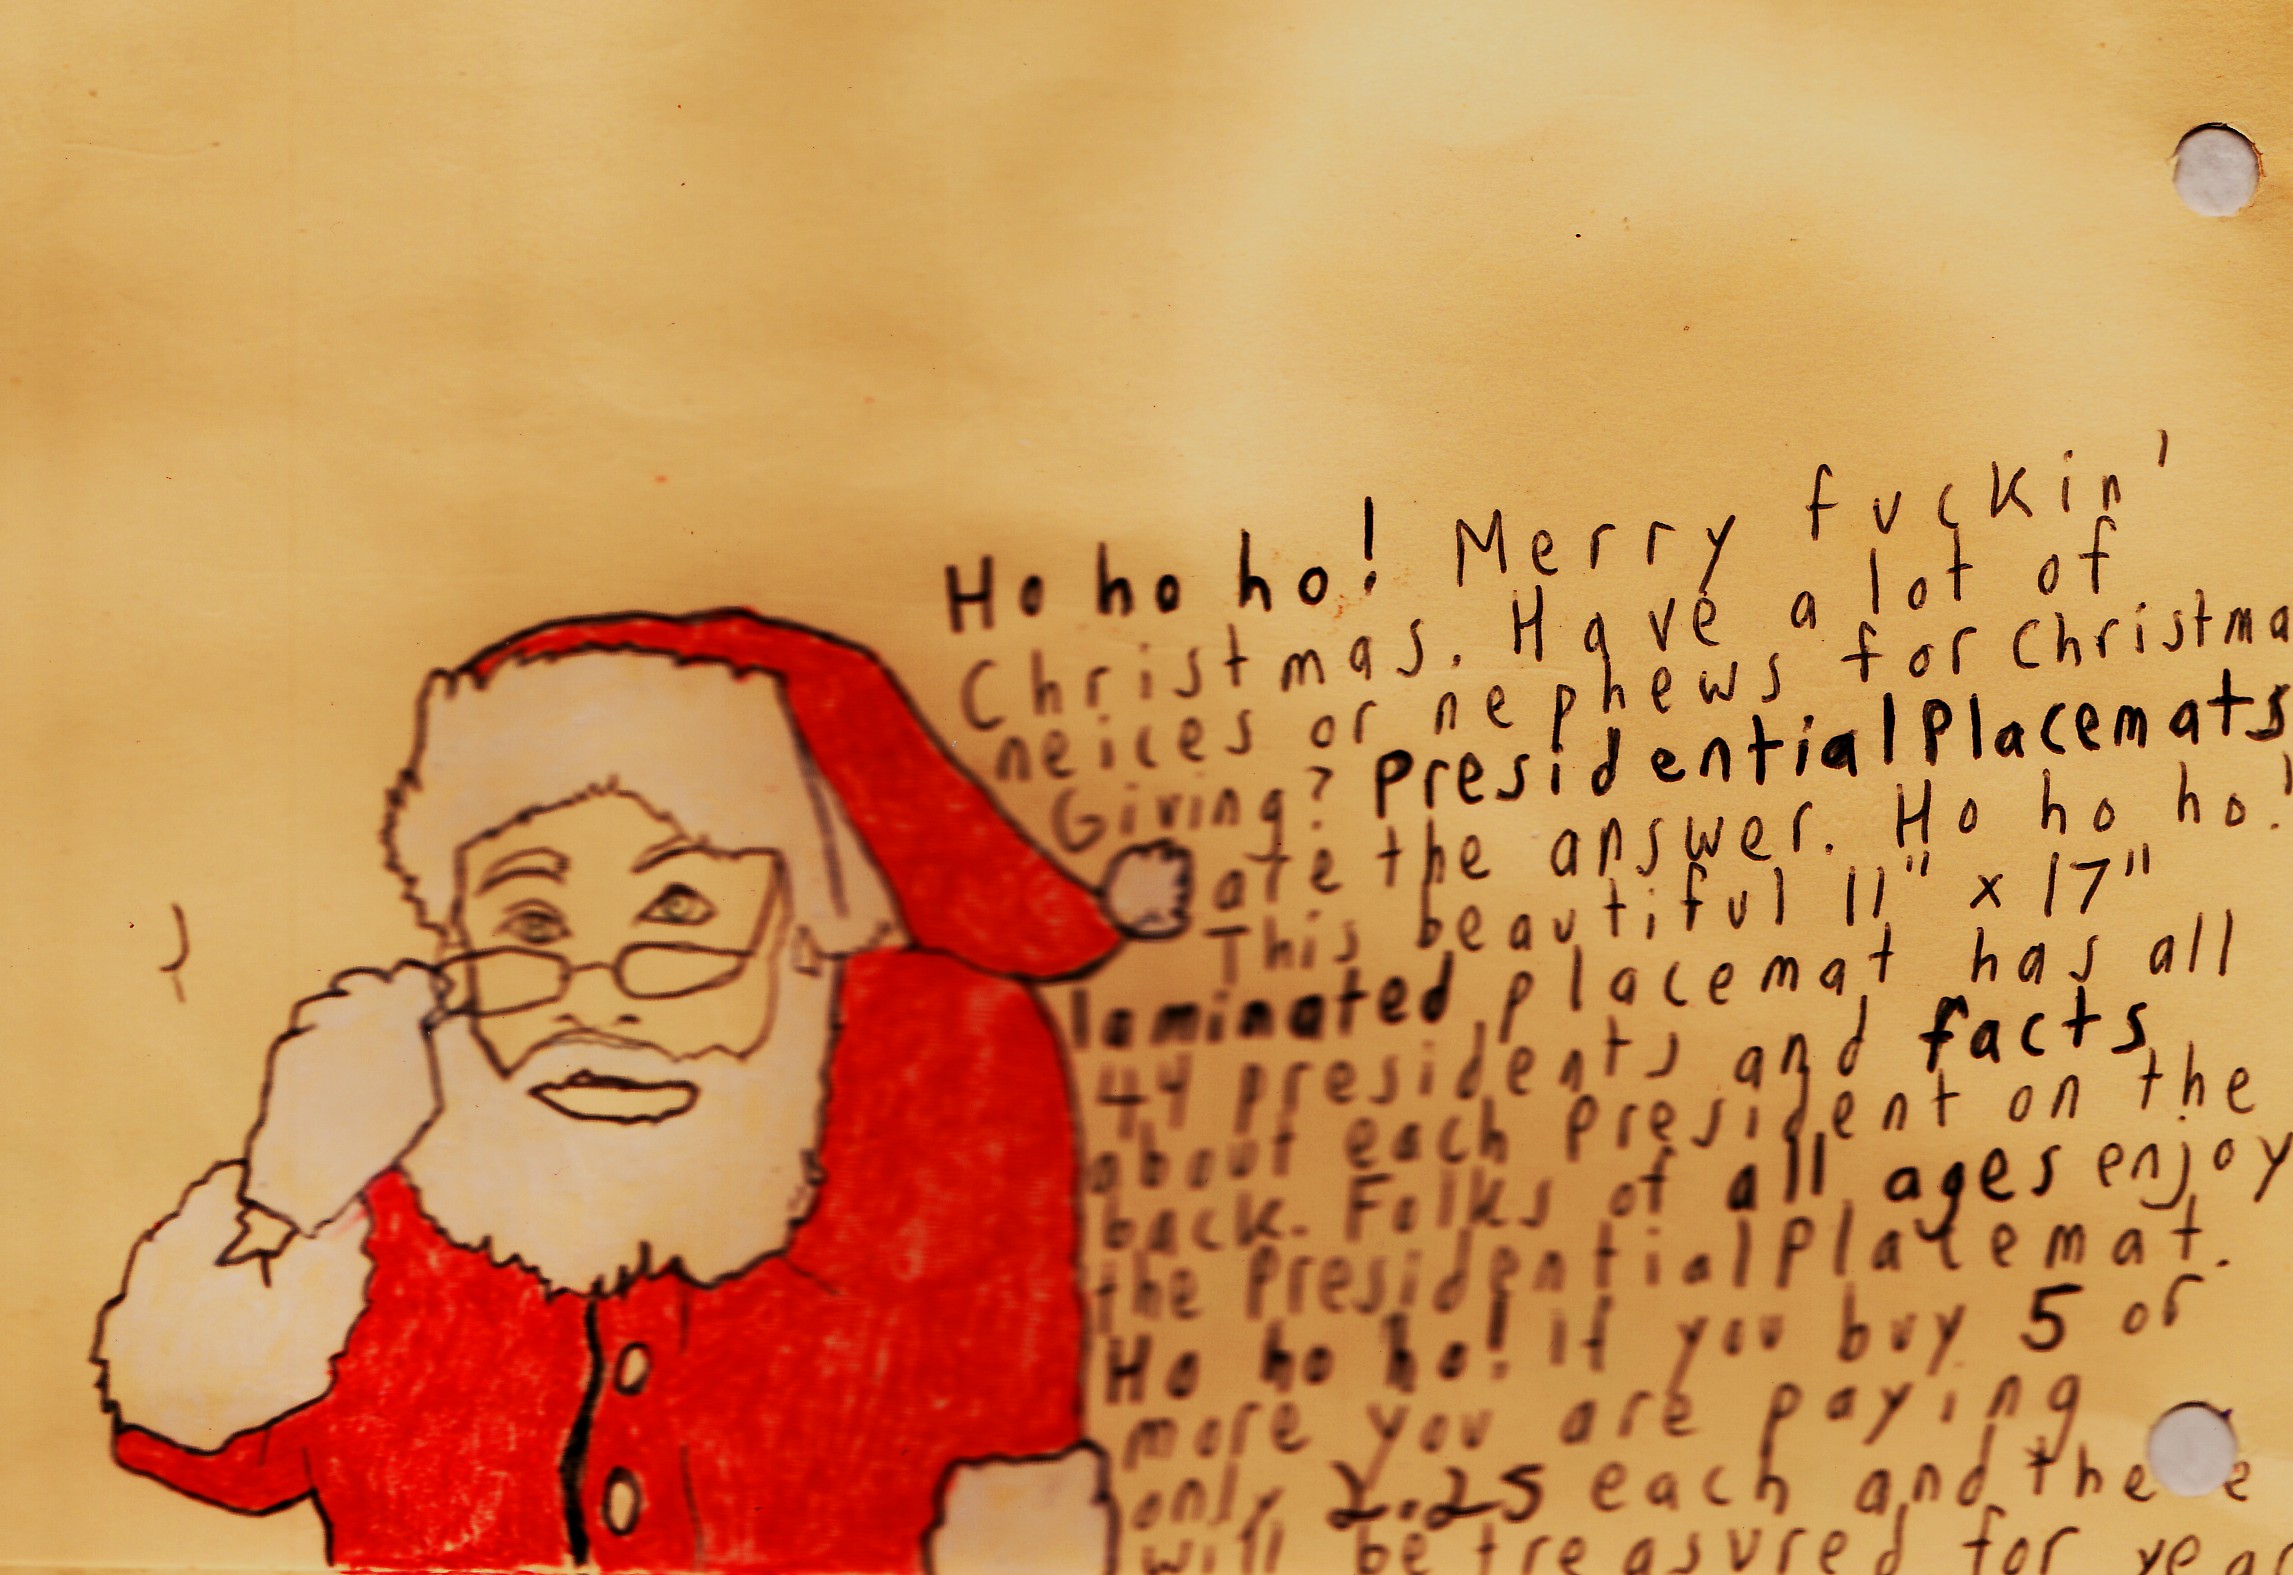 Ho ho ho! Merry fuckin'
Christmas. Have a lot of
neices or nephews for Christma
Giving? Presidential Placemats
ate the answer. Ho ho ho!
This beautiful 11" x 17"
laminated placemat has all
44 presidents and facts
about each president on the
back. Folks of all ages enjoy
the Presidential Placemat.
Ho ho ho! if you buy 5 or
more you are paying
only 2.25 each and the e
will be treasured for year